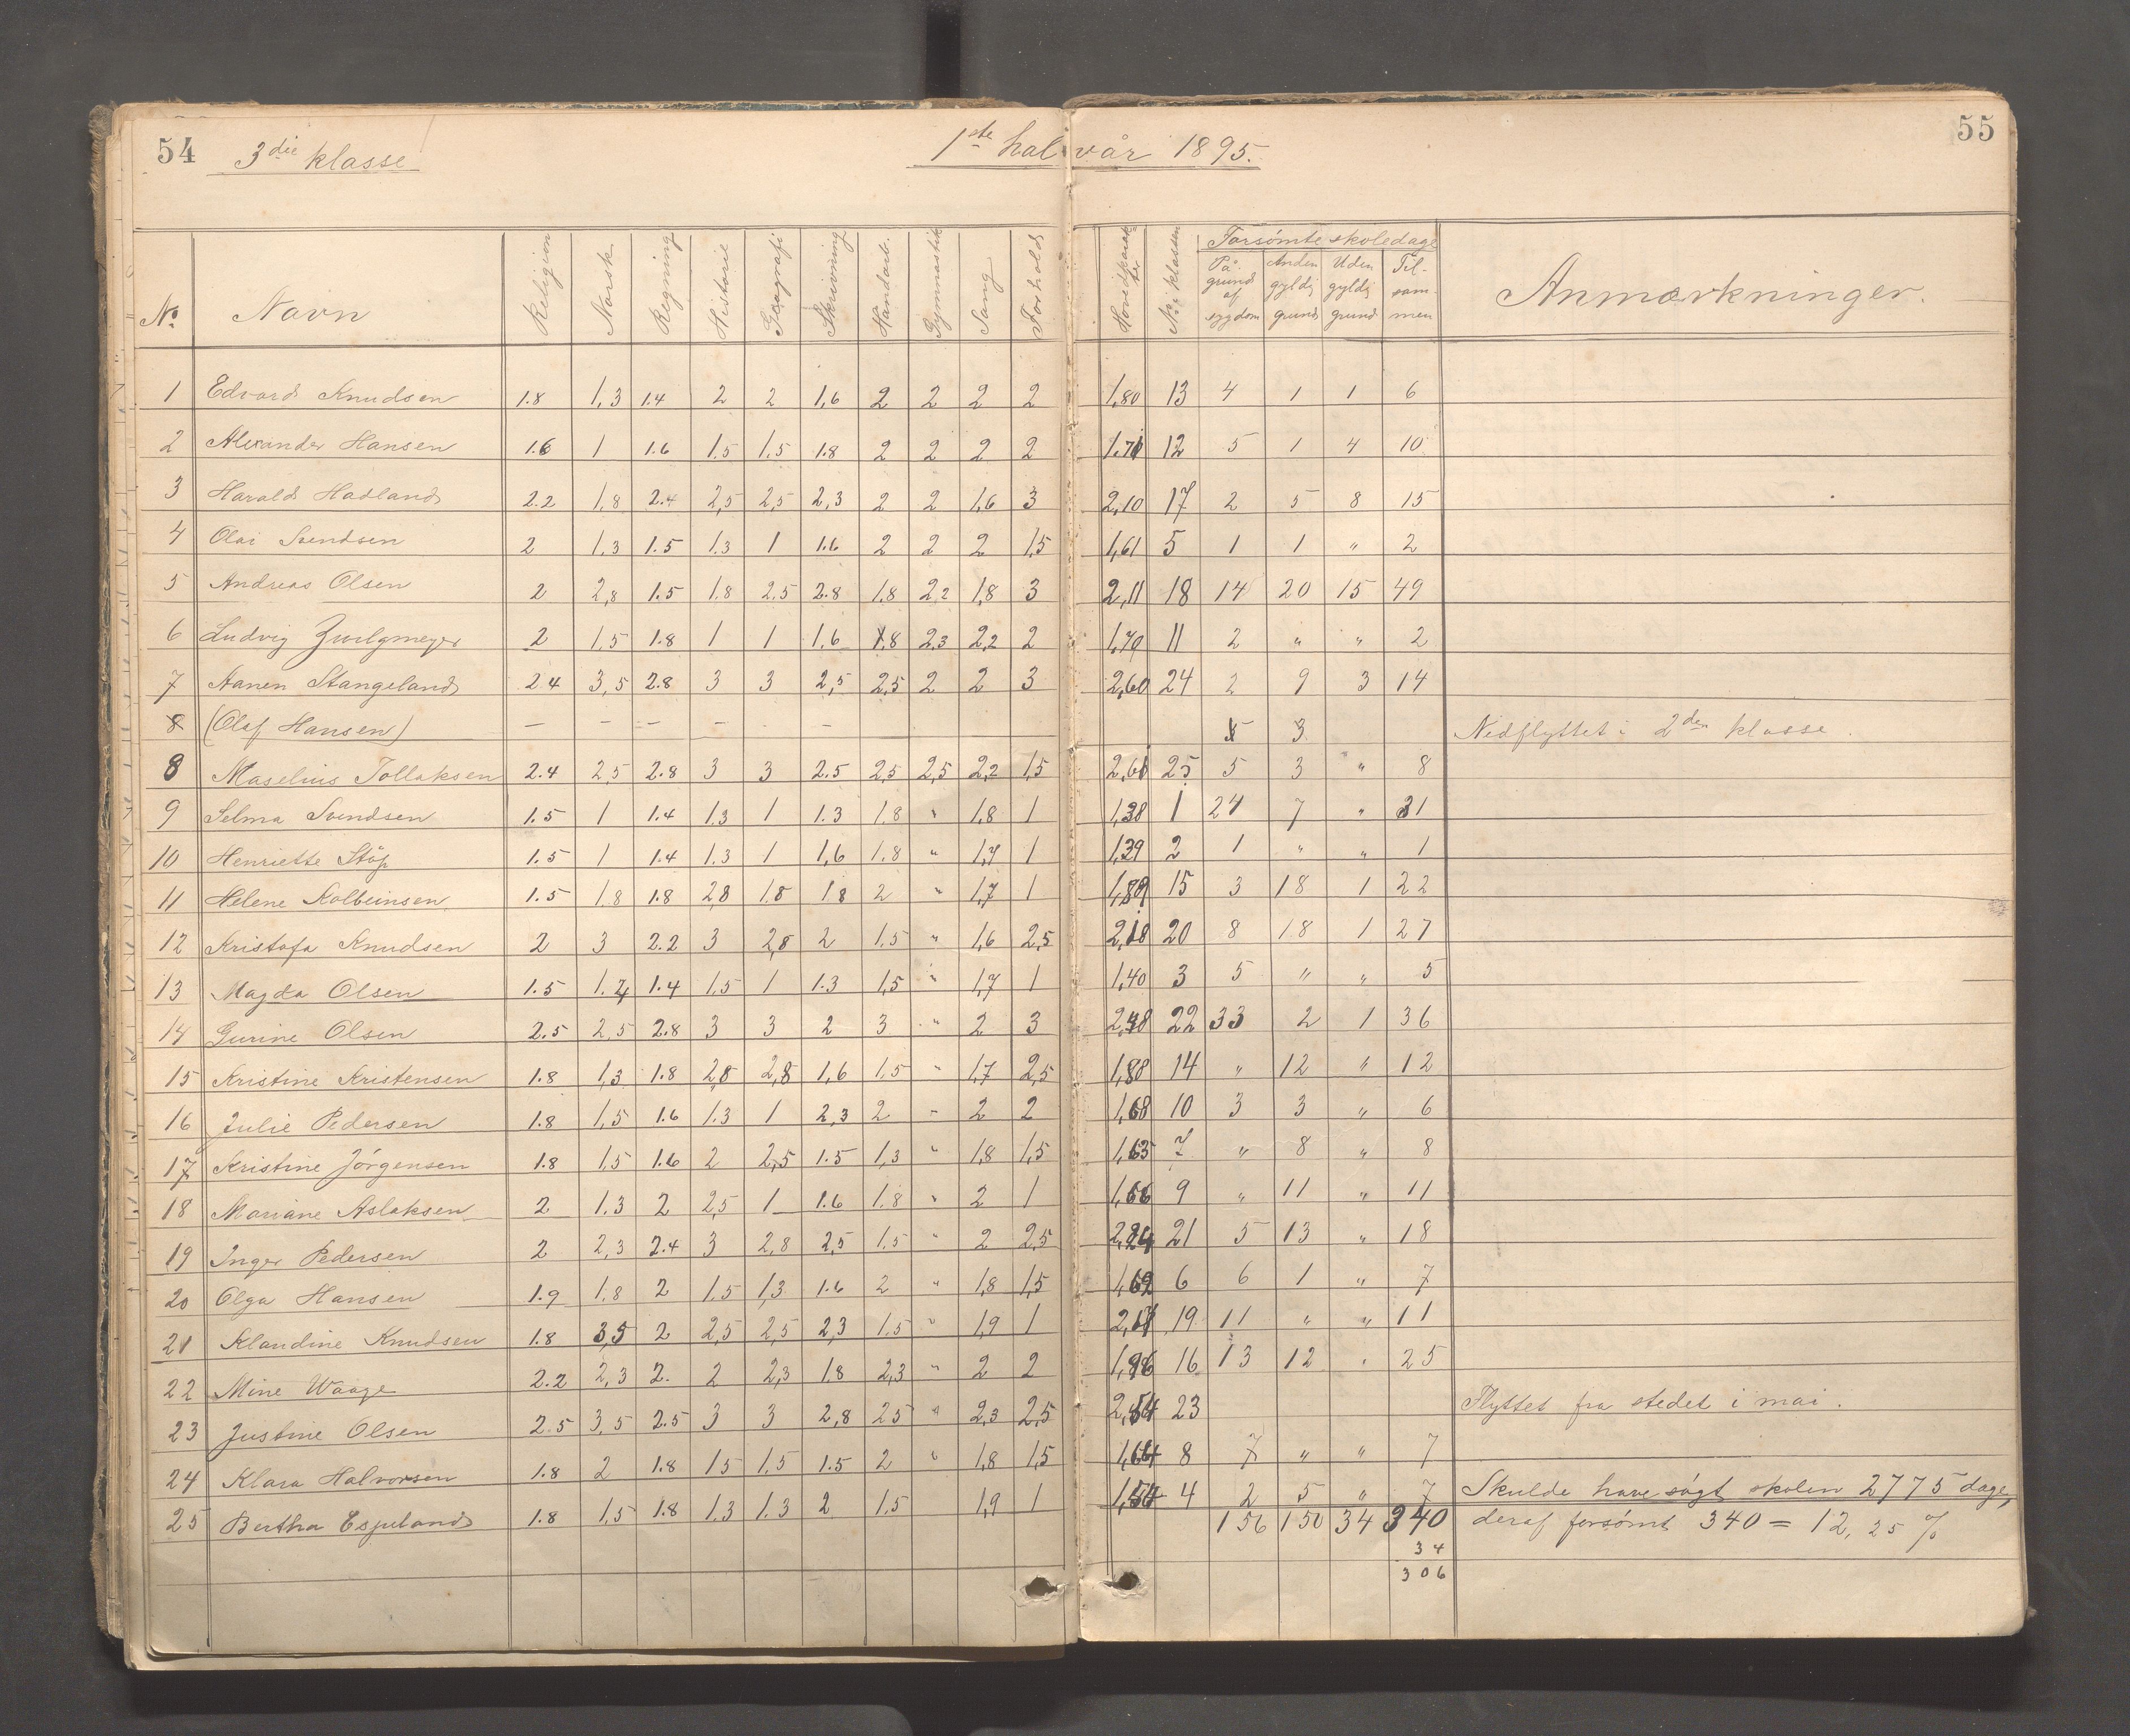 54 3die klasse 1ste halvår 1895. 55
No Navn Religion Norsk Regning Historie Geografi Skrivning Handarb. Gymnastik Sang Forhold Hovedkarakter No i klassen Forsømte skoledage På grund af sygdom Anden gyldig grund Uden gyldig grund Tilsammen Anmærkninger.
1 Edvard Knudsen 1.8 1,3 1.4 2 2 1,6 2 2 2 2 1,80 13 4 1 1 6
2 Alexander Hansen 1.6 1 1.6 1.5 1.5 1.8 2 2 2 2 12 5 1 4 10
3 Harald Hadland 2.2 1,8 2.4 2,5 2,5 2,3 2 2 1,6 3 2,10 17 2 5 8 15
4 Olai Svendsen 2 1,3 1.5 1.3 1 1.6 2 2 2 1,5 1,61 5 1 1 " 2
5 Andreas Olsen 2 2,8 1.5 1.8 2,5 2.8 1.8 2,2 1,8 3 2,11 18 14 20 15 49
6 Ludvig Zwilgmeyer 2 1,5 1.8 1 1 1.6 1.8 2,3 2,2 2 1,70 11 2 " " 2
7 Aanen Stangeland 2.4 3,5 2.8 3 3 2,5 2,5 2 2 3 2,60 24 2 9 3 14
8 (Olaf Hansen) — — — — — 3 Nedflyttet i 2den klasse.
8 Maselius Tollaksen 2.4 2,5 2.8 3 3 2.5 2,5 2,5 2,2 1,5 2,61 25 5 3 " 8
9 Selma Svendsen 1.5 1 1.4 1.3 1 1.3 1.8 " 1,8 1 1,38 1 24 7 " 31
10 Henriette Støp 1.5 1 1.4 1.3 1 1,6 1.8 " 1,7 1 1,39 2 1 " " 1
11 Helene Kolbeinsen 1.5 1.8 1.8 2,8 1.8 1.8 2 " 1,7 1 15 3 18 1 22
12 Kristofa Knudsen 2 3 2.2 3 2,8 2 1,5 " 1,6 2,5 2,18 20 8 18 1 27
13 Magda Olsen 1.5 1.4 1.5 1 1.3 1,5 " 1,7 1 1,40 3 5 " " 5
14 Gurine Olsen 2.5 2,5 2.8 3 3 2 3 " 2 3 22 33 2 1 36
15 Kristine Kristensen 1.8 1,3 1.8 2,8 2,8 1,6 1,5 " 1,7 2,5 1,88 14 " 12 " 12
16 Julie Pedersen 1.8 1,5 1.6 1.3 1 2,3 2 " 2 2 1,68 10 3 3 " 6
17 Kristine Jørgensen 1.8 1,5 1.6 2 2,5 1.5 1,3 " 1,8 1,5 1,63 7 " 8 " 8
18 Mariane Aslaksen 2 1.3 2 2,5 1 1.6 1.8 " 2 1 1,66 9 " 11 " 11
19 Inger Pedersen 2 2,3 2.4 3 2,8 2,5 1.5 " 2 2,5 21 5 13 " 18
20 Olga Hansen 1.9 1.8 2 1.5 1,3 1.6 2 " 1,8 1,5 1,62 6 6 1 " 7
21 Klaudine Knudsen 1.8 3,5 2 2,5 2,5 2,3 1.5 " 1,9 1 19 11 " " 11
22 Mine Waage 2.2 2,3 2. 2 2,3 1.8 2,3 " 2 2 16 13 12 " 25
23 Justine Olsen 2.5 3,5 2.5 3 3 2,8 2,5 " 2,3 2,5 23 Flyttet fra stedet i mai.
24 Klara Halvorsen 1.8 2 1.8 1.5 1.5 1.5 2 " 1,8 1,5 1,64 8 7 " " 7
25 Bertha Espeland 1.8 1,5 1.8 1.3 1.3 2 1.5 1,9 1 1,54 4 2 5 " 7 Skulde have søgt skolen 2775 dage,
156 150 34 340 deraf forsømt 340 = 12,25 %
34
306